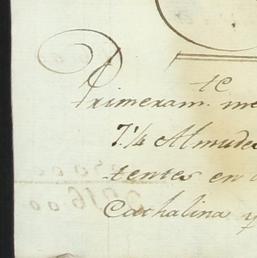 Primeram.te me
7.¼ Almudes
tentes en
Cachalina y